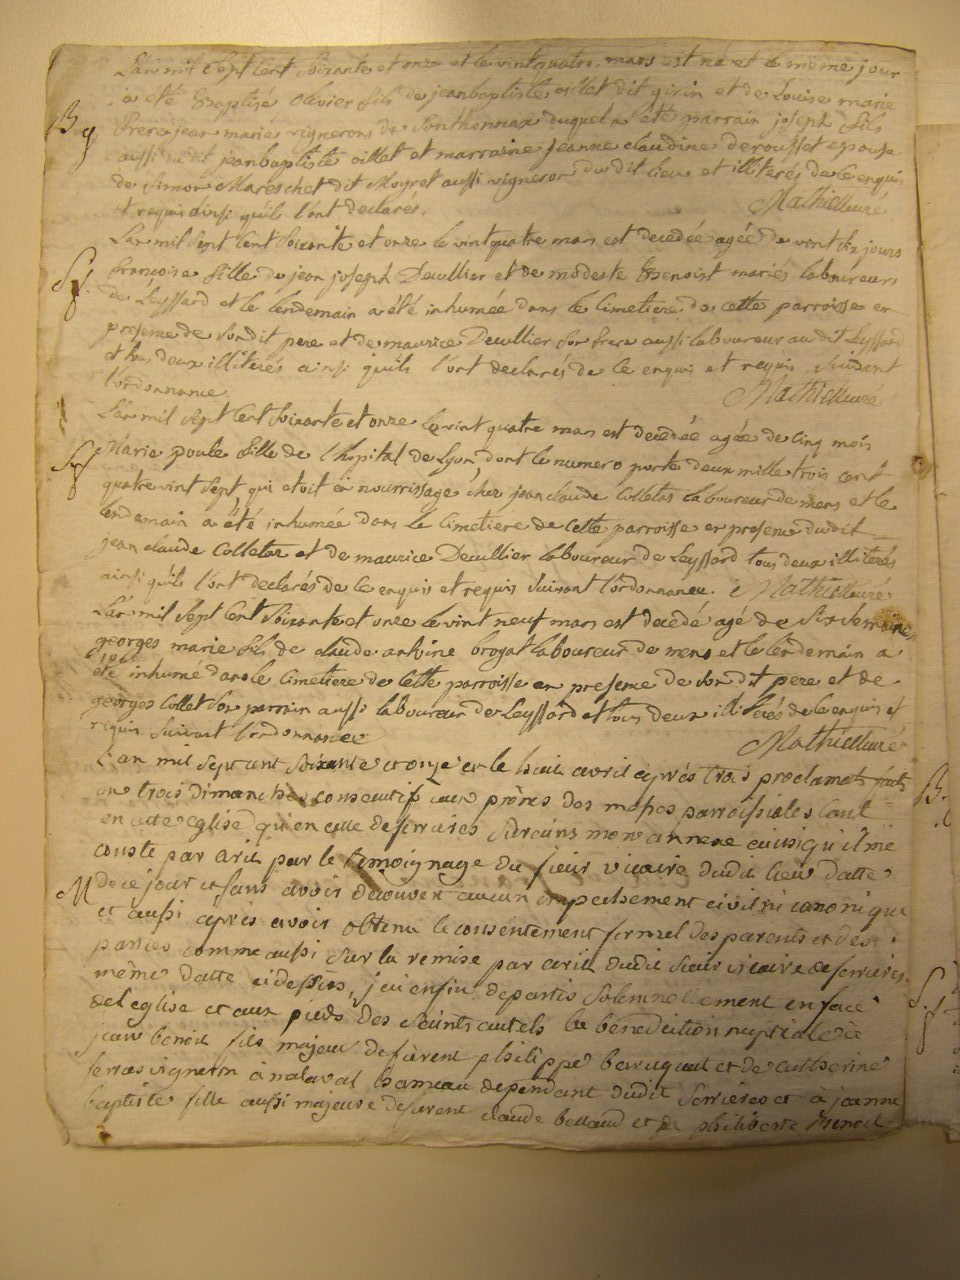 L'an mil sept cent soixante et onze et le vint quatre mars est né et le même jour
a été Baptisé olivier fils de jeanbaptiste oillet dit girin et de Louise marie
B frere jean marié vignerons de Ponthonnax duquel a été parrain joseph fils
aussi dudit jeanbaptiste oillet et marraine jeanne claudine derousset epouse
de Simon Mareschet dit Moyret aussi vigneron dudit lieu et illiterés de ce enquis
et requis ainsi qu'ils l'ont declarés. Mathieu curé
L'an mil sept cent soixante et onze le vint quatre mars est decedée agée de vint six jours
Sep françoise fille de jean joseph Decullier et de modeste Benoist mariés laboureurs
de Leyssard et le lendemain a été inhumée dans le cimetiere de cette parroisse en
presence de sondit pere et de maurice Decullier son frere aussi laboureur audit Leyssard
et tou deux illiterés ainsi qu'ils l'ont declarés de ce enquis et requis suivant
l'ordonnance. Mathieu curé
L'an mil sept cent soixante et onze le vint quatre mars est decedée agée de cinq mois
Marie poule fille de l'hopital de Lyon, dont le numero porte deux mille trois cent
quatre vint sept qui etoit en nourrissage chez jean claude Colletas laboureur de mens et le
lendemain a été inhumée dans le cimetiere de cette parroisse en presence dudit
jean claude Colletas et de maurice Decullier laboureur de Leyssard tous deux illiterés
ainsi qu'ils l'ont declarés de ce enquis et requis suivant l'ordonnance. Mathieu curé
L'an mil sept cent soixante et onze le vint neuf mars est decedé agé de six semaines
georges marie fils de claude antoine brogat laboureur de mens et le lendemain a
été inhumé dans le cimetiere de cette parroisse en presence de son dit pere et de
georges Collet son parrain aussi laboureur de Leyssard et tous deux illiterés de ce enquis et
requis suivant l'ordonnance Mathieu curé
B. L'an mil sept cent soixante et onze et le huit avril après trois proclamats faits
en trois dimanches consecutifs aux prônes des messes parroissiales tant
en cette eglise qu'en celle de serrieres mon annexe ainsi qu'il me
conste par avis par le temoignage du sieur vicaire dudit lieu datté
M de ce jour et sans avoir decouvert aucun empechement civil ni canonique
et aussi après avoir obtenu le consentement formel des parents et des
parties comme aussi sur la remise par avis dudit sieur vicaire de serrieres
même datte ci dessus, j'ai enfin departis solemnellement en face
de l'eglise et aux pieds des saints autels la bénédiction nuptiale à
jean benoit fils majeur de fûrent philippe et de catherine
ferras vigneron à malaval hameau dependant dudit serrières et à jeanne
baptiste fille aussi majeure de furent claude belland et de philiberte Benoit